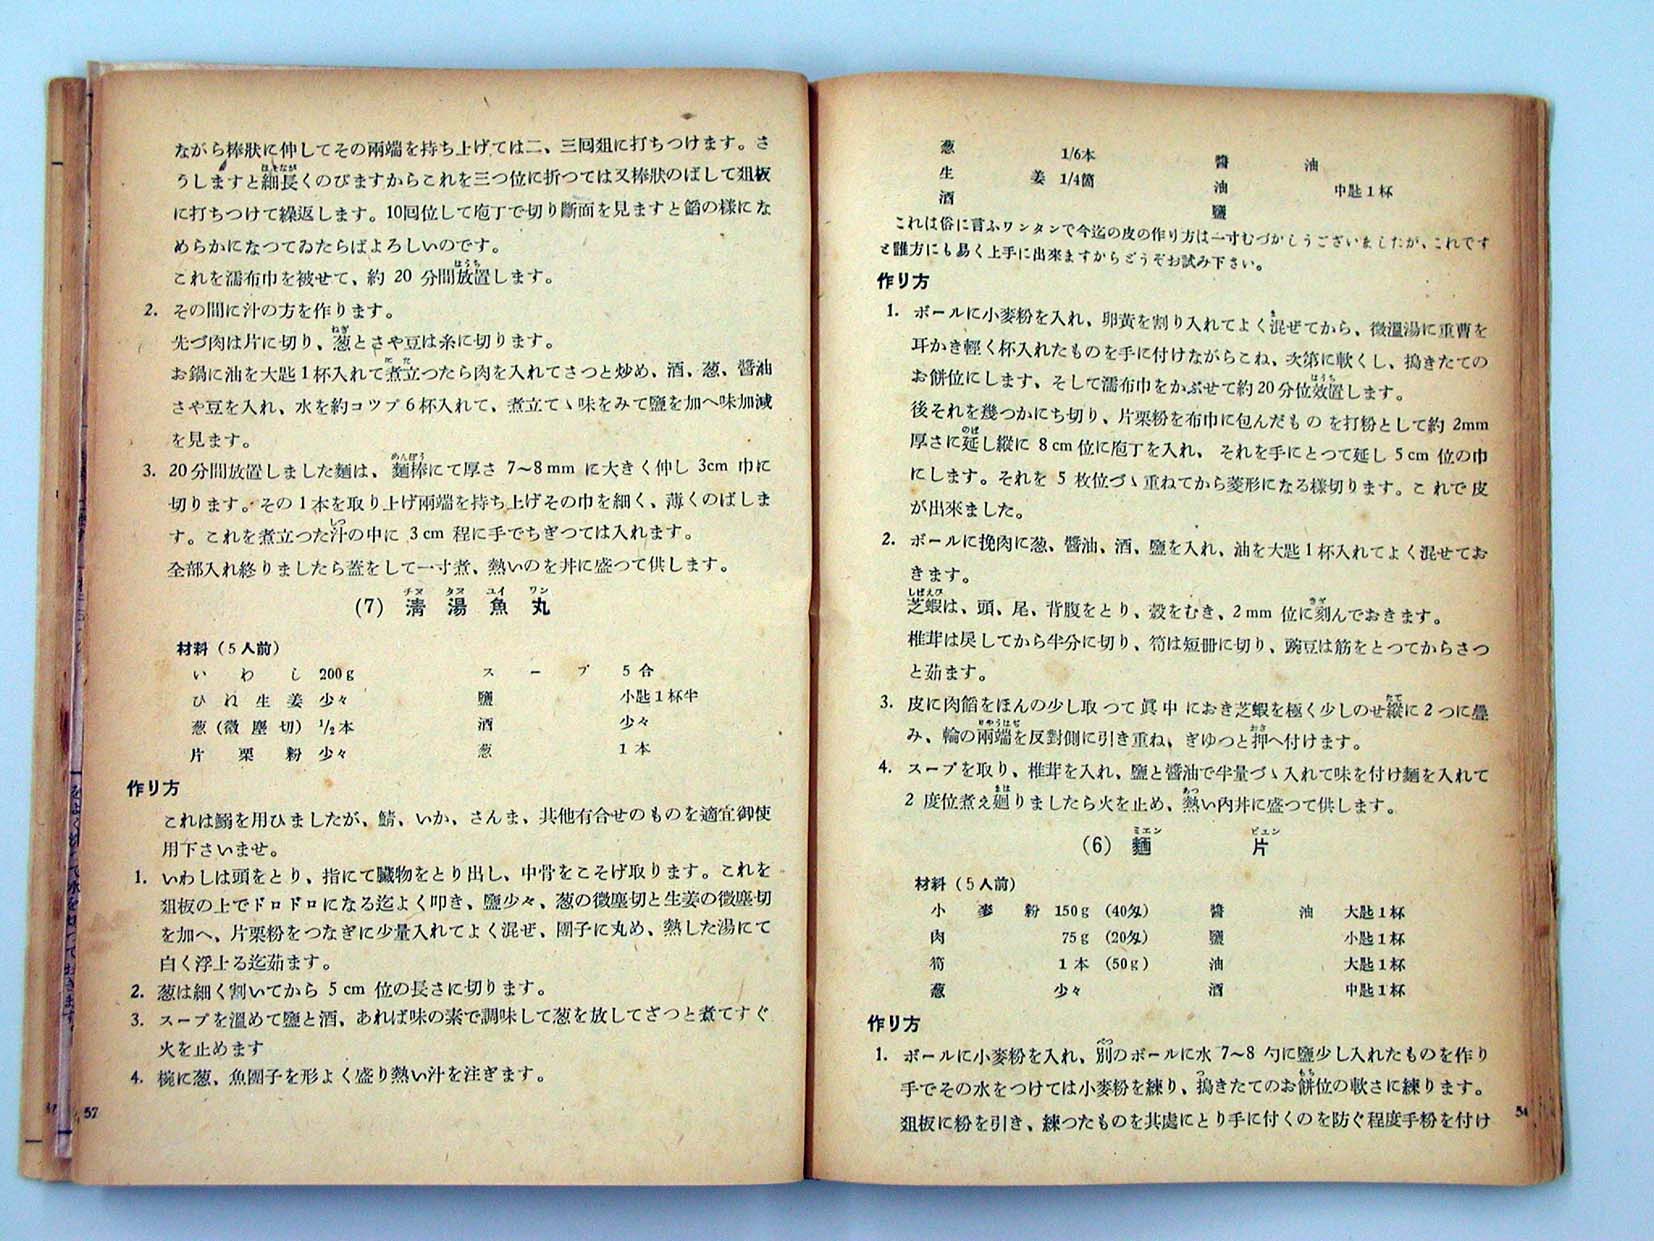 葱 1/6本 醬油
生姜 1/4箇 油 中匙1杯
酒 鹽
これは俗に言ふワンタンで今迄の皮の作り方は一寸むづかしうございましたが、これです
と誰方にも易く上手に出來ますからどうぞお試み下さい。
作り方
1. ボールに小麥粉を入れ、卵黃を割り入れてよく混ぜてから、微溫湯に重曹を
耳かき輕く杯入れたものを手に付けながらこね、次第に軟くし、搗きたての
お餅位にします、そして濡布巾をかぶせて約20分位放置します。
後それを幾つかにち切り、片栗粉を布巾に包んだものを打粉として約 2mm
厚さに延し縱に 8cm 位に庖丁を入れ、それを手にとつて延し 5cm 位の巾
にします。それを 5 枚位づゝ重ねてから菱形になる樣切ります。これで皮
が出來ました。
2. ボールに挽肉に葱、醬油、酒、鹽を入れ、油を大匙1杯入れてよく混せてお
きます。
芝蝦は、頭、尾、背腹をとり、殼をむき、2mm 位に刻んでおきます。
椎茸は戾してから半分に切り、筍は短冊に切り、豌豆は筋をとつてからさつ
と茹ます。
3. 皮に肉餡をほんの少し取つて眞中におき芝蝦を極く少しのせ縱に2つに疊
み、輪の兩端を反對側に引き重ね、ぎゆつと押へ付けます。
4. スープを取り、椎茸を入れ、鹽と醬油で半量づゝ入れて味を付け麵を入れて
2 度位煮え廻りましたら火を止め、熱い內丼に盛つて供します。
(6) 麵片
ミエン ピエン
材料(5人前)
小麥粉 150g (40匁) 醬油 大匙1杯
肉 75g (20匁) 鹽 小匙1杯
筍 1本 (50g) 油 大匙1杯
葱 少々 酒 中匙1杯
作り方
1. ボールに小麥粉を入れ、別のボールに水 7~8 勺に鹽少し入れたものを作り
手でその水をつけては小麥粉を練り、搗きたてのお餅位の軟さに練ります。
俎板に粉を引き、練つたものを共處にとり手に付くのを防ぐ程度手粉を付け
ながら棒狀に伸してその兩端を持ち上げては二、三回俎に打ちつけます。さ
うしますと細長くのびますからこれを三つ位に折つては又棒狀のばして俎板
に打ちつけて繰返します。10回位して庖丁で切り斷面を見ますと餡の樣にな
めらかになつてゐたらばよろしいのです。
これを濡布巾を被せて、約 20 分間放置します。
2. その間に汁の方を作ります。
先づ肉は片に切り、葱とさや豆は糸に切ります。
お鍋に油を大匙1杯入れて煮立つたら肉を入れてさつと炒め、酒、葱、醬油
さや豆を入れ、水を約コツプ6杯入れて、煮立てゝ味をみて鹽を加へ味加減
を見ます。
3. 20分間放置しました麵は、麵棒にて厚さ 7~8mm に大きく伸し 3cm 巾に
切ります。その1本を取り上げ兩端を持ち上げその巾を細く、薄くのばしま
す。これを煮立つた汁の中に 3cm 程に手でちぎつては入れます。
全部入れ終りましたら蓋をして一寸煮、熱いのを丼に盛つて供します。
(7) 淸湯魚丸
チヌ タヌ ユイ ワン
材料(5人前)
いわし 200g スープ 5合
ひね生姜 少々 鹽 小匙1杯半
葱(微塵切) 1/2本 酒 少々
片栗粉 少々 葱 1本
作り方
これは鰯を用ひましたが、鯖、いか、さんま、其他有合せのものを適宜御使
用下さいませ。
1. いわしは頭をとり、指にて臟物をとり出し、中骨をこそげ取ります。これを
俎板の上でドロドロになる迄よく叩き、鹽少々、葱の微塵切と生姜の微塵切
を加へ、片栗粉をつなぎに少量入れてよく混ぜ、團子に丸め、熱した湯にて
白く浮上る迄茹ます。
2. 葱は細く割いてから 5cm 位の長さに切ります。
3. スープを溫めて鹽と酒、あれば味の素で調味して葱を放してざつと煮てすぐ
火を止めます
4. 椀に葱、魚團子を形よく盛り熱い汁を注ぎます。
57